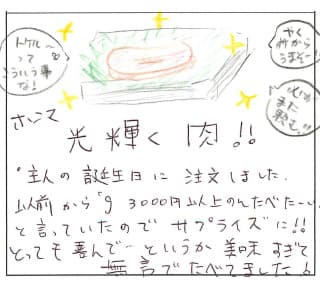 トケル〜
って
こういう事
な!
やく
前から
うまそー
また
頼も。
ホンマ
光輝く肉!!
主人の誕生日に注文しました。
以前から「g 3000円以上のんたべたーい」
と言っていたのでサプライズに!!
とっても喜んで…というか美味すぎて
無言でたべてました!